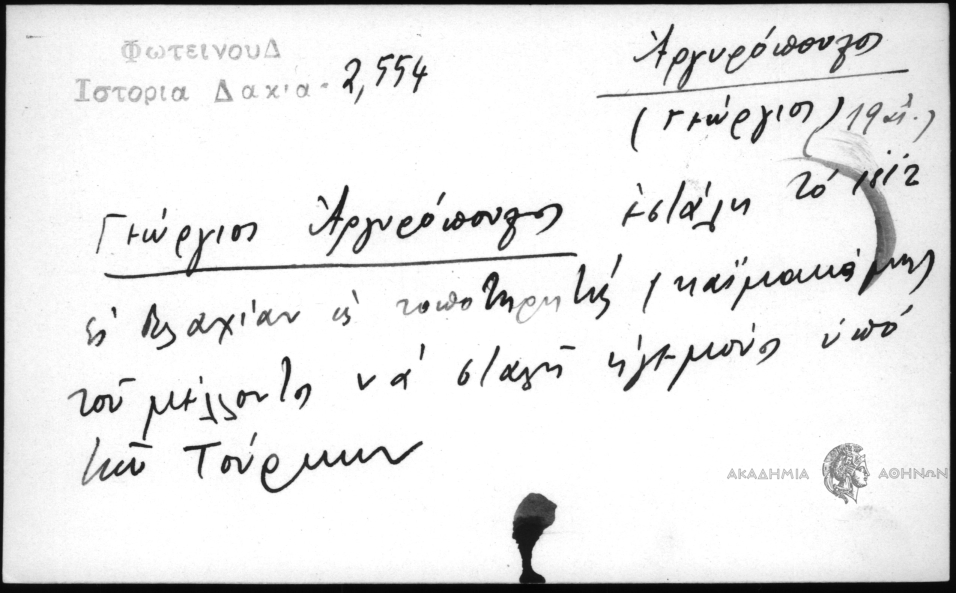 ΦωτεινουΔ
Ιστορια Δακια
2,554
Ἀργυρόπουλος
(Γεώργιος) 19 αἰ.
Γεώργιος Ἀργυρόπουλος ἐστάλη τό 1812
εἰς Βλαχίαν ὡς τοποτηρητής (καϊμακάμης
τοῦ μέλλοντος νά σταλῆ ἡγεμόνος ὑπό
τῶν Τούρκων
ΑΚΑΔΗΜΙΑ ΑΘΗΝΩΝ